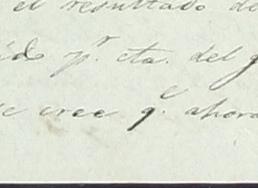 el resultado de
ido pr. cta. del g
e cree qe. ahora